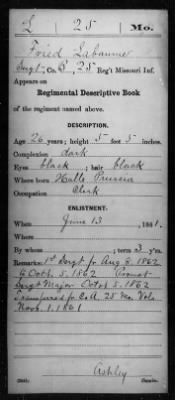 L 25 Mo.
Fried Labaume
Sergt, Co. B, 25 Reg't Missouri Inf.
Appears on
Regimental Descriptive Book
of the regiment named above.
DESCRIPTION.
Age 26 years; height 5 feet 5 inches.
Complexion dark
Eyes black ; hair black
Where born Halle Prussia
Occupation Clerk
ENLISTMENT.
When June 13 , 1861.
Where
By whom ; term 3 y'rs.
Remarks: 1st Sergt fr Aug 3, 1862
to Oct 5. 1862 Promot
Sergt Major Octob 5. 1862
Transferred fr Co A, 25 Mo Vols
Nov. 1. 1861
Ashley
Copyist.